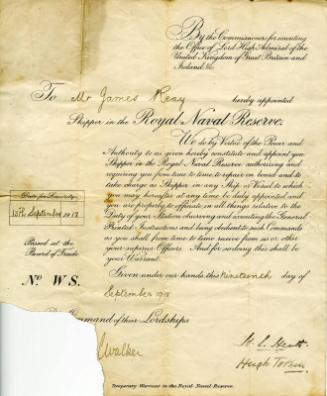 By the Commissioners for executing
the Office of Lord High Admiral of the
United Kingdom of Great Britain and
Ireland &c.
To Mr James Reay hereby appointed
Skipper in the Royal Naval Reserve.
We do by Virtue of the Power and
Authority to us given hereby constitute and appoint you
Skipper in the Royal Naval Reserve authorising and
requiring you from time to time to repair on board and to
take charge as Skipper in any Ship or Vessel to which
you may hereafter at any time be duly appointed and
you are properly to officiate in all things relative to the
Duty of your Station observing and executing the General
Printed Instructions and being obedient to such Commands
as you shall from time to time receive from us or other
your superior Officers. And for so doing this shall be
your Warrant.
Date for Seniority
19th September 1918
Passed at the
Board of Trade
No W.S.
Given under our hands this Nineteenth day of
September 1918
Command of their Lordships
Walker
Hugh
Temporary Warrant in the Royal Naval Reserve.